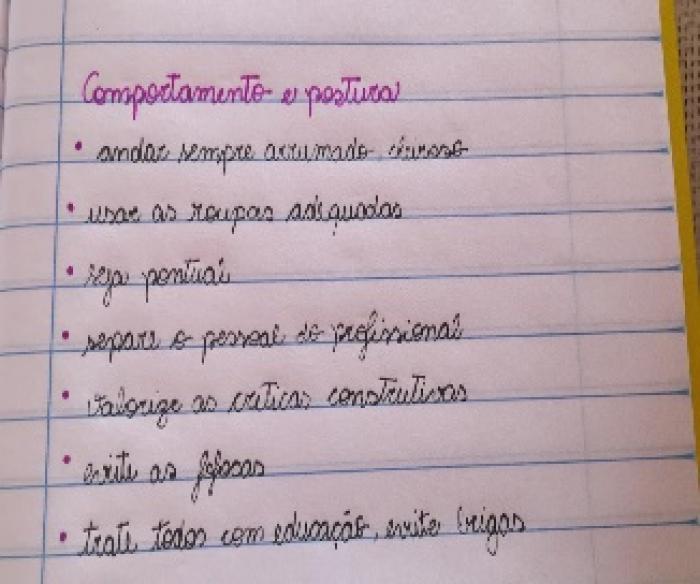 Comportamento e postura
• andar sempre arrumado, cheiroso
• usar as roupas adequadas
• seja pontual
• separe o pessoal do profissional
• valorize as criticas construtivas
• evite as fofocas
• trate todos com educação, evite brigas